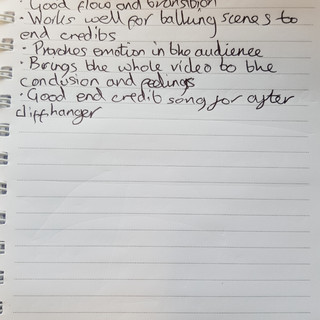 · Good flow and transition
· Works well for talking scenes to
end credits
· Provokes emotion in the audience
· Brings the whole video to the
conclusion and feelings
· Good end credit song for after
cliffhanger